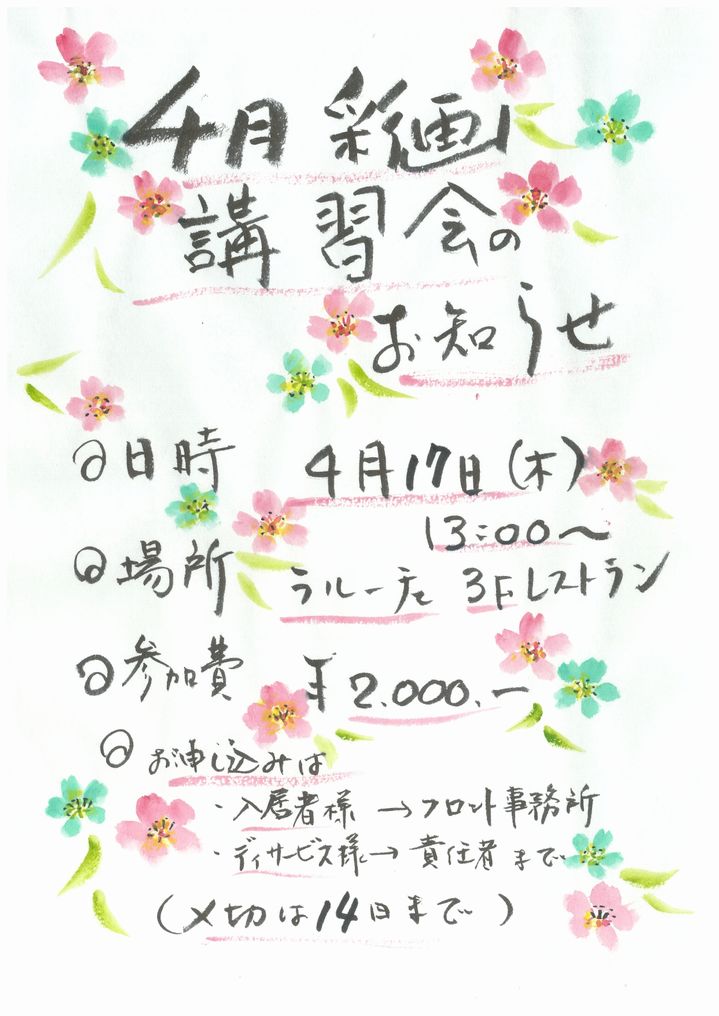 4月 彩画
講習会の
お知らせ
日時 4月17日(木)
13:00〜
場所 ラルーテ 3Fレストラン
参加費 ¥2.000.―
お申し込みは
・入居者様→フロント事務所
・デイサービス様→責任者まで
(〆切は14日まで)